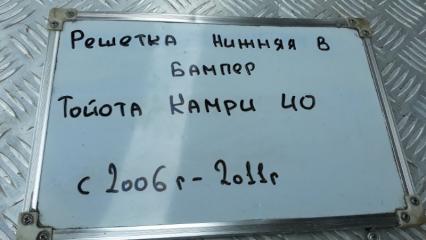 Решетка нижняя в
бампер
Тойота Камри 40
с 2006г - 2011г